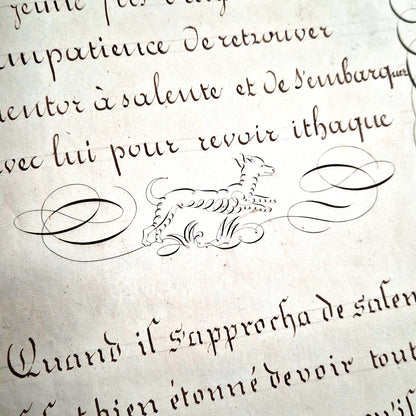 jeune fils d'Ulysse
impatience de retrouver
mentor à salente et de s'embarquer
avec lui pour revoir ithaque
Quand il s'approcha de salen
bien étonné de voir tout
qu'il